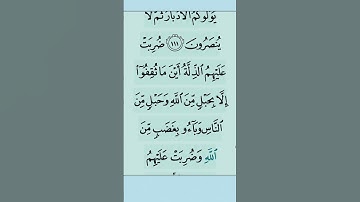 يُوَلُّوكُمُ ٱلْأَدْبَارَ ثُمَّ لَا
يُنصَرُونَ ١١١ ضُرِبَتْ
عَلَيْهِمُ ٱلذِّلَّةُ أَيْنَ مَا ثُقِفُوٓا۟
إِلَّا بِحَبْلٍ مِّنَ ٱللَّهِ وَحَبْلٍ مِّنَ
ٱلنَّاسِ وَبَآءُو بِغَضَبٍ مِّنَ
ٱللَّهِ وَضُرِبَتْ عَلَيْهِمُ